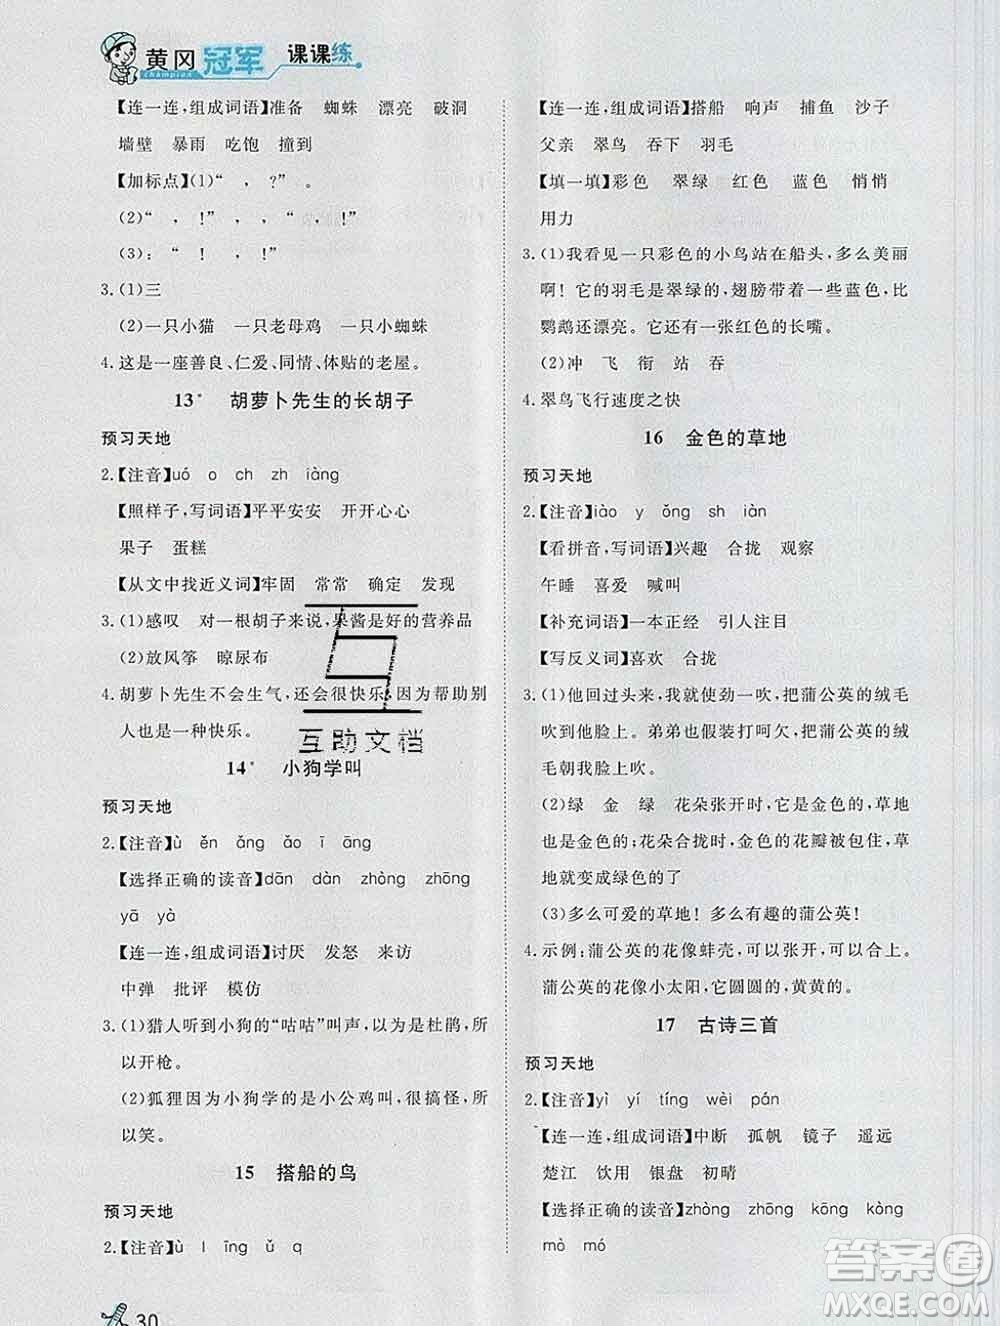 黄冈冠军 课课练
champion
【连一连,组成词语】准备 蜘蛛 漂亮 破洞
墙壁 暴雨 吃饱 撞到
【加标点】(1)“ , ?” 。
(2)“ , !” , !”
(3):“ ! , !”
3.(1)三
(2)一只小猫 一只老母鸡 小蜘蛛
4.这是一座善良、仁爱、同情、体贴的老屋。
13* 胡萝卜先生的长胡子
预习天地
2.【注音】uó o ch zh iàng
【照样子,写词语】平平安安 开开心心
果子 蛋糕
【从文中找近义词】牢固 常常 确定 发现
3.(1)感叹 对一根胡子来说,果酱是好的营养品
(2)放风筝 晾尿布
4.胡萝卜先生不会生气,还会很快乐,因为帮助别
人也是一种快乐。
14* 小狗学叫
预习天地
2.【注音】ù ěn ǎng ǎo ī āng
【选择正确的读音】dān dàn zhòng zhōng
yā yà
【连一连,组成词语】讨厌 发怒 来访
中弹 批评 模仿
3.(1)猎人听到小狗的“咕咕”叫声,以为是杜鹃,所
以开枪。
(2)狐狸因为小狗学的是小公鸡叫,很搞怪,所
以笑。
15 搭船的鸟
预习天地
2.【注音】ù l īng ǔ q
30
【连一连,组成词语】搭船 响声 捕鱼 沙子
父亲 翠鸟 吞下 羽毛
【填一填】彩色 翠绿 红色 蓝色 悄悄
用力
3.(1)我看见一只彩色的小鸟站在船头,多么美丽
啊!它的羽毛是翠绿的,翅膀带着一些蓝色,比
鹦鹉还漂亮。它还有一张红色的长嘴。
(2)冲 飞 衔 站 吞
4.翠鸟飞行速度之快
16 金色的草地
预习天地
2.【注音】iào y ǒng sh iàn
【看拼音,写词语】兴趣 合拢 观察
午睡 喜爱 喊叫
【补充词语】一本正经 引人注目
【写反义词】喜欢 合拢
3.(1)他回过头来,我使劲一吹,把蒲公英的绒毛
吹到他的脸上。弟弟也假装打呵欠,把蒲公英的绒
毛朝我脸上吹。
(2)绿 金 绿 花朵张开时,它是金色的,草地
也是金色的;花朵合拢时,金色的花瓣被包住,草
地就变成绿色的了
(3)多么可爱的草地!多么有趣的蒲公英!
4.示例:蒲公英的花像蚌壳,可以张开,可以合上。
蒲公英的花像小太阳,它圆圆的,黄黄的。
17 古诗三首
预习天地
2.【注音】yì yí tíng wèi pán
【连一连,组成词语】中断 孤帆 镜子 遥远
楚江 饮用 银盘 初晴
【选择正确的读音】zhòng zhōng kōng kòng
mò mó
互助文档
答案圈
MXQE.COM